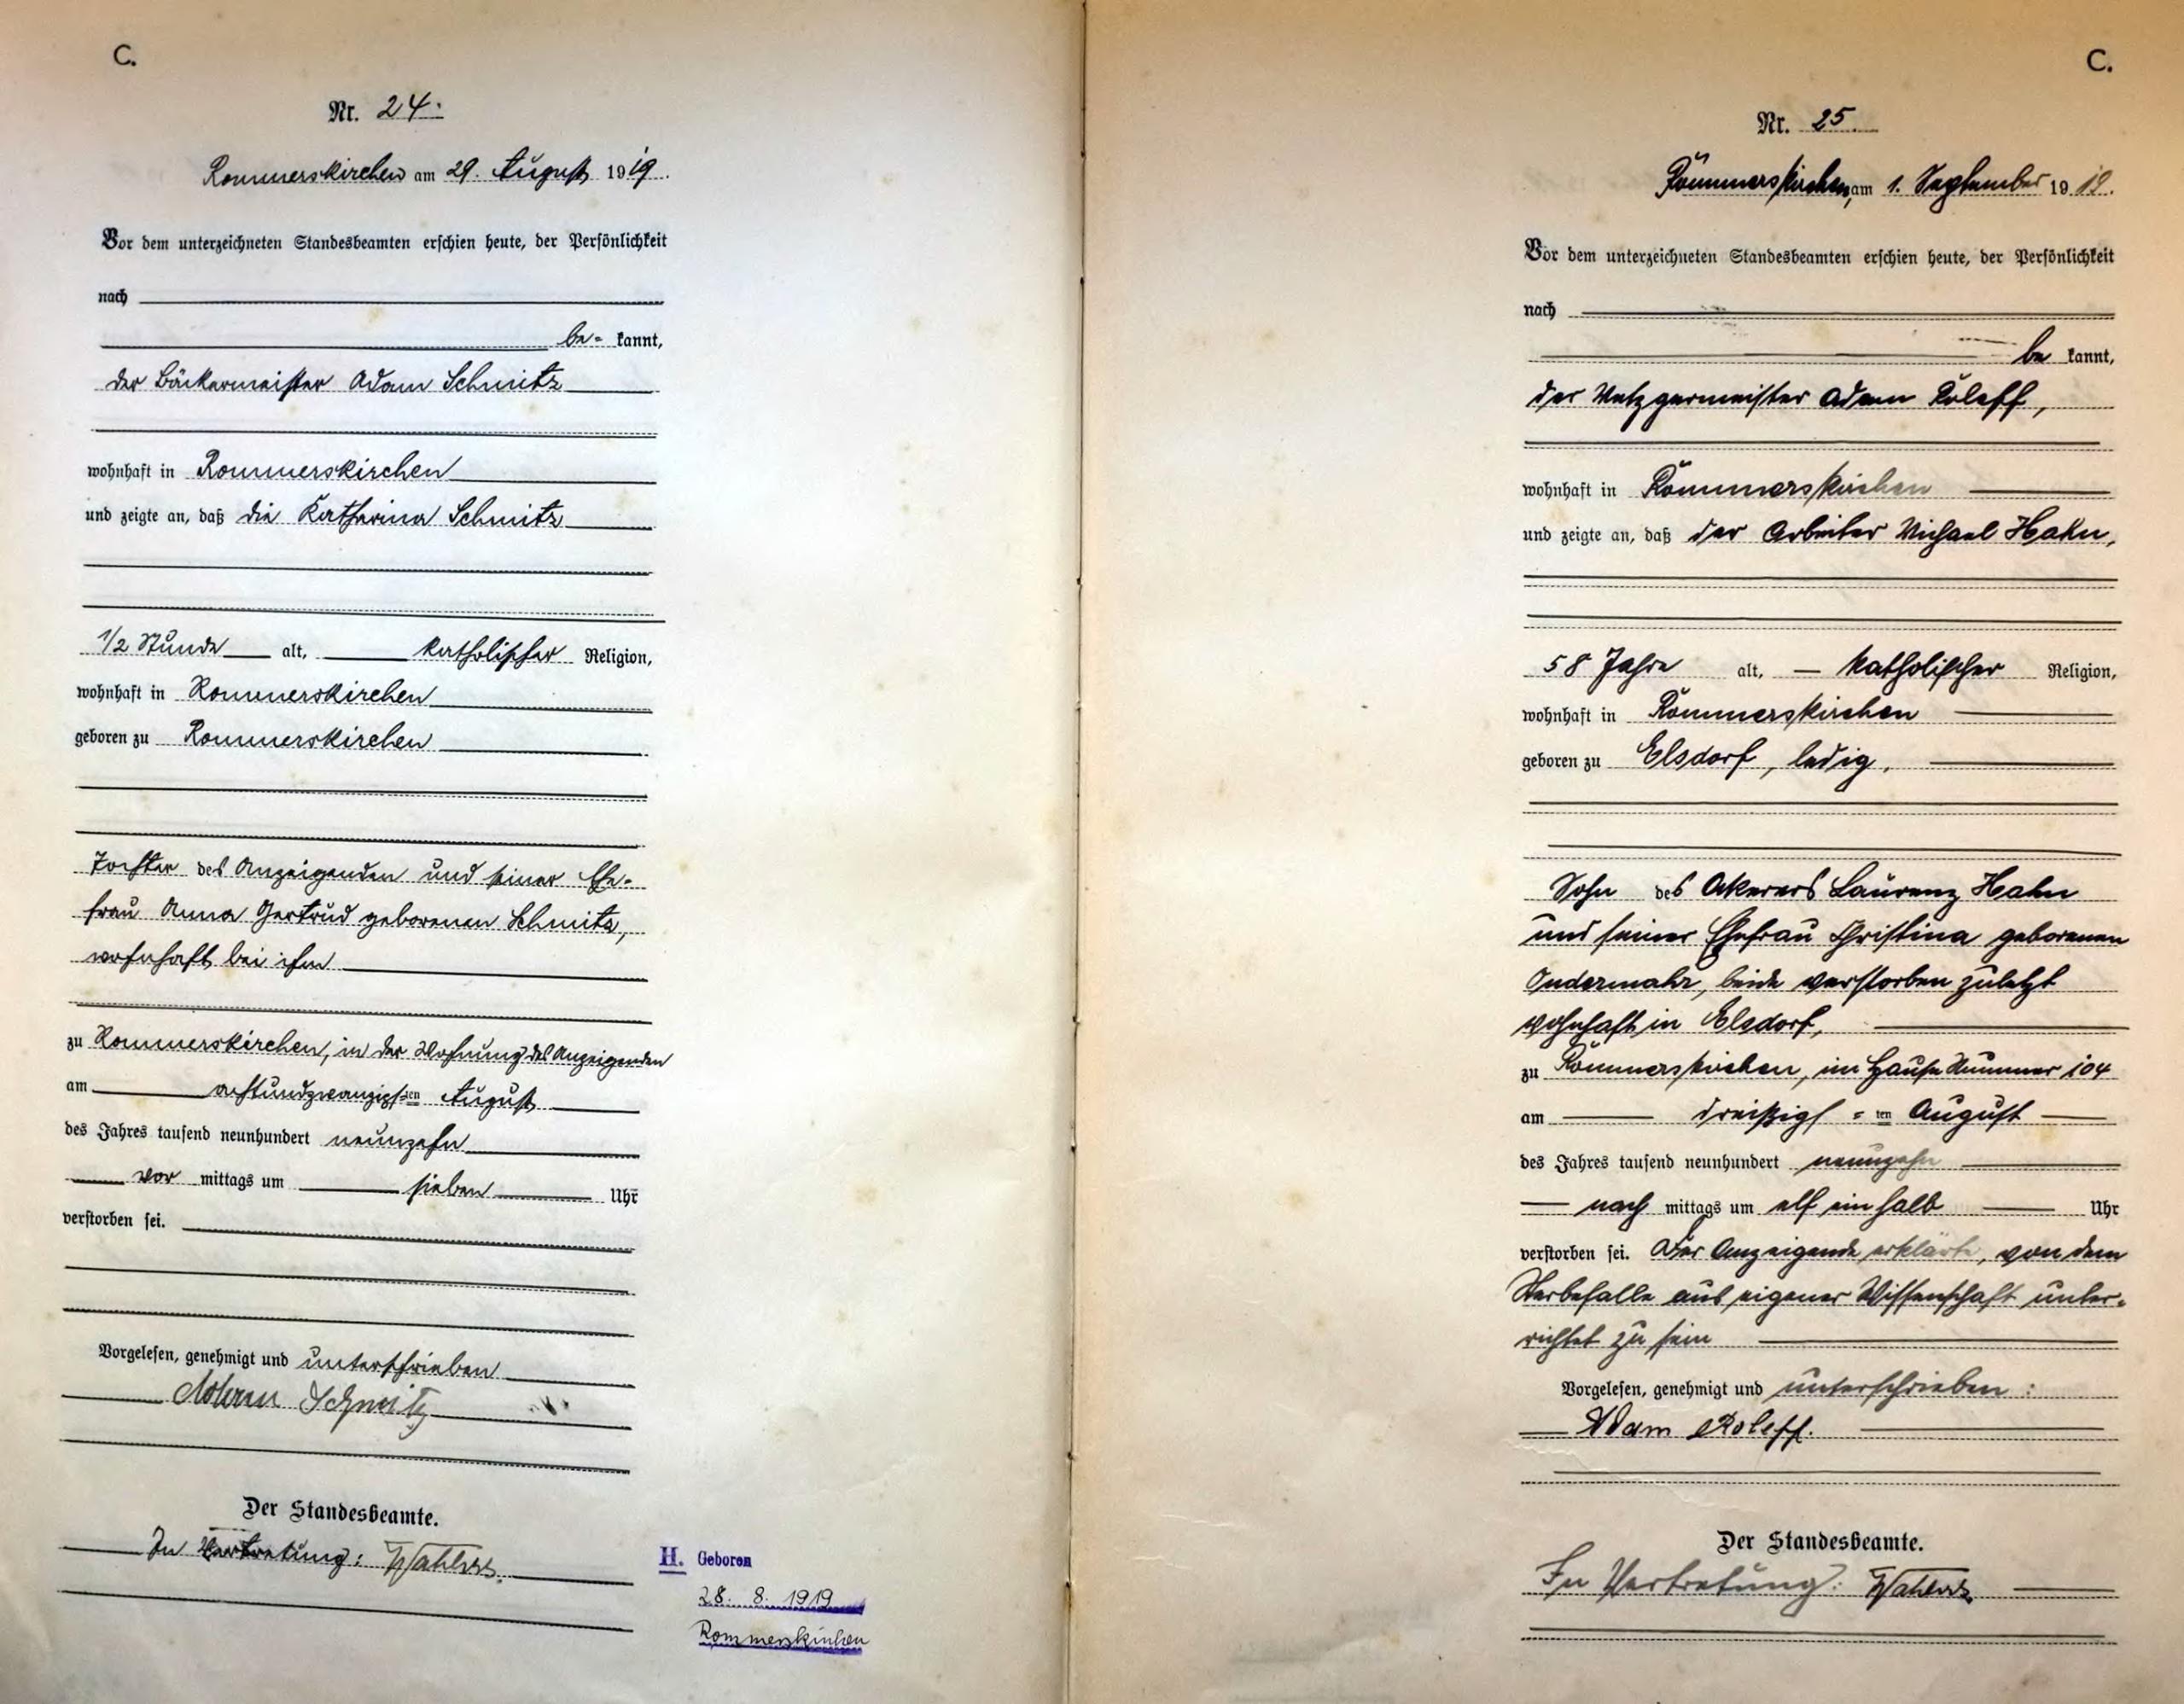 C.
Nr. 24.
Rommerskirchen am 29. August 1919.
Vor dem unterzeichneten Standesbeamten erschien heute, der Persönlichkeit
nach
be= kannt,
der Bäckermeister Adam Schmitz
wohnhaft in Rommerskirchen
und zeigte an, daß die Katharina Schmitz
1/2 Stunde alt, katholischer Religion,
wohnhaft in Rommerskirchen
geboren zu Rommerskirchen
Tochter des Anzeigenden und seiner Ehe-
frau Anna Gertrud geborenen Schmitz,
wohnhaft bei ihm
zu Rommerskirchen, in der Wohnung des Anzeigenden
am achtundzwanzigsten August
des Jahres tausend neunhundert neunzehn
vor mittags um sieben Uhr
verstorben sei.
Vorgelesen, genehmigt und unterschrieben
Adam Schmitz
Der Standesbeamte.
In Vertretung: Wahlers.
H. Geboren
28. 8. 1919
Rommerskirchen
C.
Nr. 25.
Rommerskirchen, am 1. September 1919.
Vor dem unterzeichneten Standesbeamten erschien heute, der Persönlichkeit
nach
be kannt,
der Metzgermeister Adam Roleff,
wohnhaft in Rommerskirchen
und zeigte an, daß der Arbeiter Michael Hahn,
58 Jahre alt, katholischer Religion,
wohnhaft in Rommerskirchen
geboren zu Elsdorf, ledig,
Sohn des Ackerers Laurenz Hahn
und seiner Ehefrau Christina geborenen
Ondermahr, beide verstorben zuletzt
wohnhaft in Elsdorf,
zu Rommerskirchen, im Hause Nummer 104
am dreißigs =ten August
des Jahres tausend neunhundert neunzehn
nach mittags um elf ein halb Uhr
verstorben sei. Der Anzeigende erklärte, von dem
Sterbefalle aus eigener Wissenschaft unter-
richtet zu sein
Vorgelesen, genehmigt und unterschrieben:
Adam Roleff.
Der Standesbeamte.
In Vertretung: Wahlers.